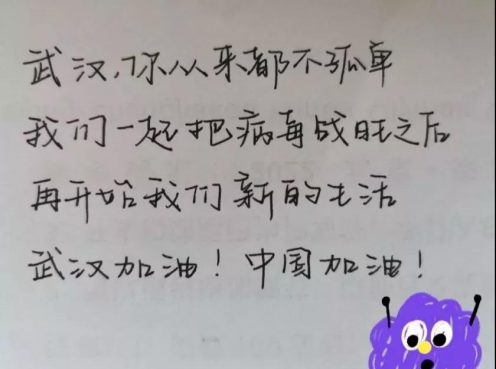 武汉，你从来都不孤单
我们一起把病毒战胜之后
再开始我们新的生活
武汉加油！中国加油！